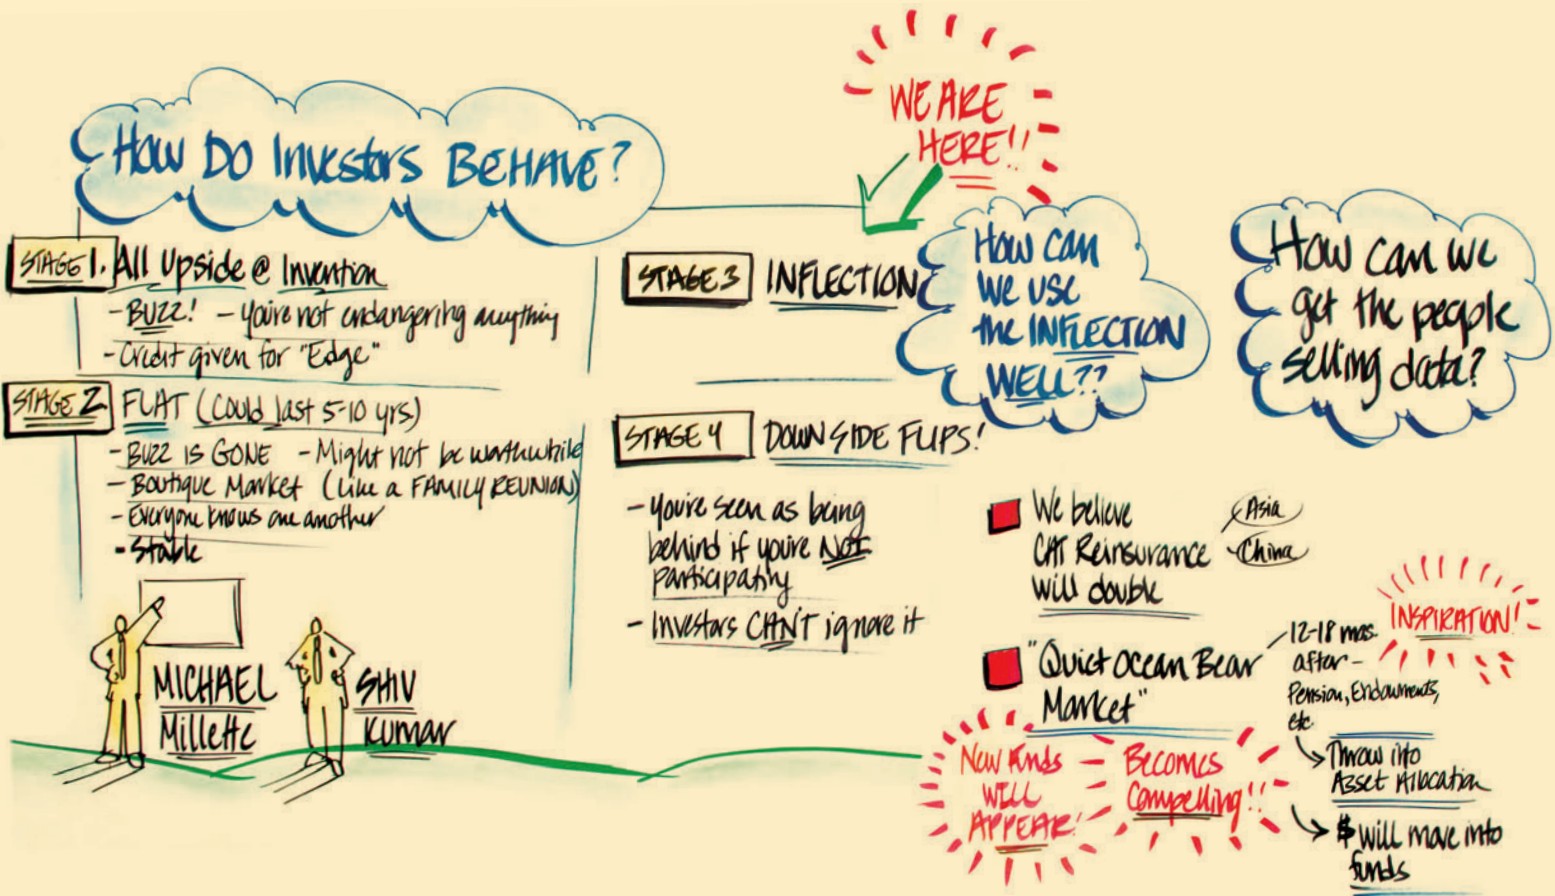 How Do Investors BEHAVE?
STAGE 1. All Upside @ Invention
- BUZZ! - You're not endangering anything
- Credit given for "Edge"
STAGE 2. FLAT (Could last 5-10 yrs.)
- BUZZ IS GONE - Might not be worthwhile
- Boutique Market (Like a FAMILY REUNION)
- Everyone knows one another
- Stable
MICHAEL
Millette
SHIV
Kumar
WE ARE
HERE!!
STAGE 3 INFLECTION
How can
We use
the INFLECTION
WELL??
STAGE 4 DOWNSIDE FLIPS!
- You're seen as being
behind if you're NOT
participating
- Investors CAN'T ignore it
How can we
get the people
selling data?
We believe
CAT Reinsurance
will double
Asia
China
"Quiet Ocean Bear
Market"
12-18 mos.
after -
Pension, Endowments,
etc.
INSPIRATION!
Throw into
Asset Allocation
$ will move into
funds
New Funds
WILL
APPEAR!
Becomes
Compelling!!